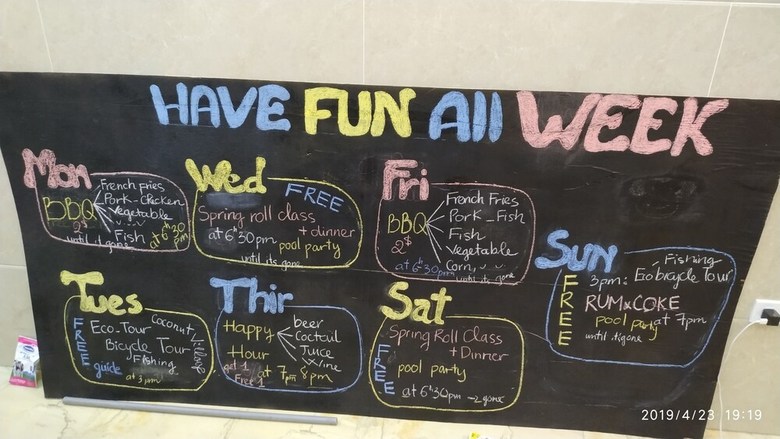 HAVE FUN All WEEK
Mon
BBQ
2$
until its gone
French Fries
Pork-Chicken
Vegetable
Fish
at 6h30 pm
Wed
FREE
Spring roll class
+ dinner
at 6h30pm
pool party
until its gone
Fri
BBQ
2$
at 6h30pm
French Fries
Pork_Fish
Fish
Vegetable
Corn,
until its gone
Sun
FREE
Fishing
3pm: Eco bicycle Tour
RUM x COKE
pool party at 7pm
until its gone
Tues
FREE
guide
Eco-Tour Coconut Village
Bicycle Tour
Fishing
at 3pm
Thir
Happy
Hour
get 1
Free 1
beer
Coctail
Juice
Wine
at 7pm 8pm
Sat
FREE
Spring Roll Class
+ Dinner
pool party
at 6h30pm
2019/4/23 19:19